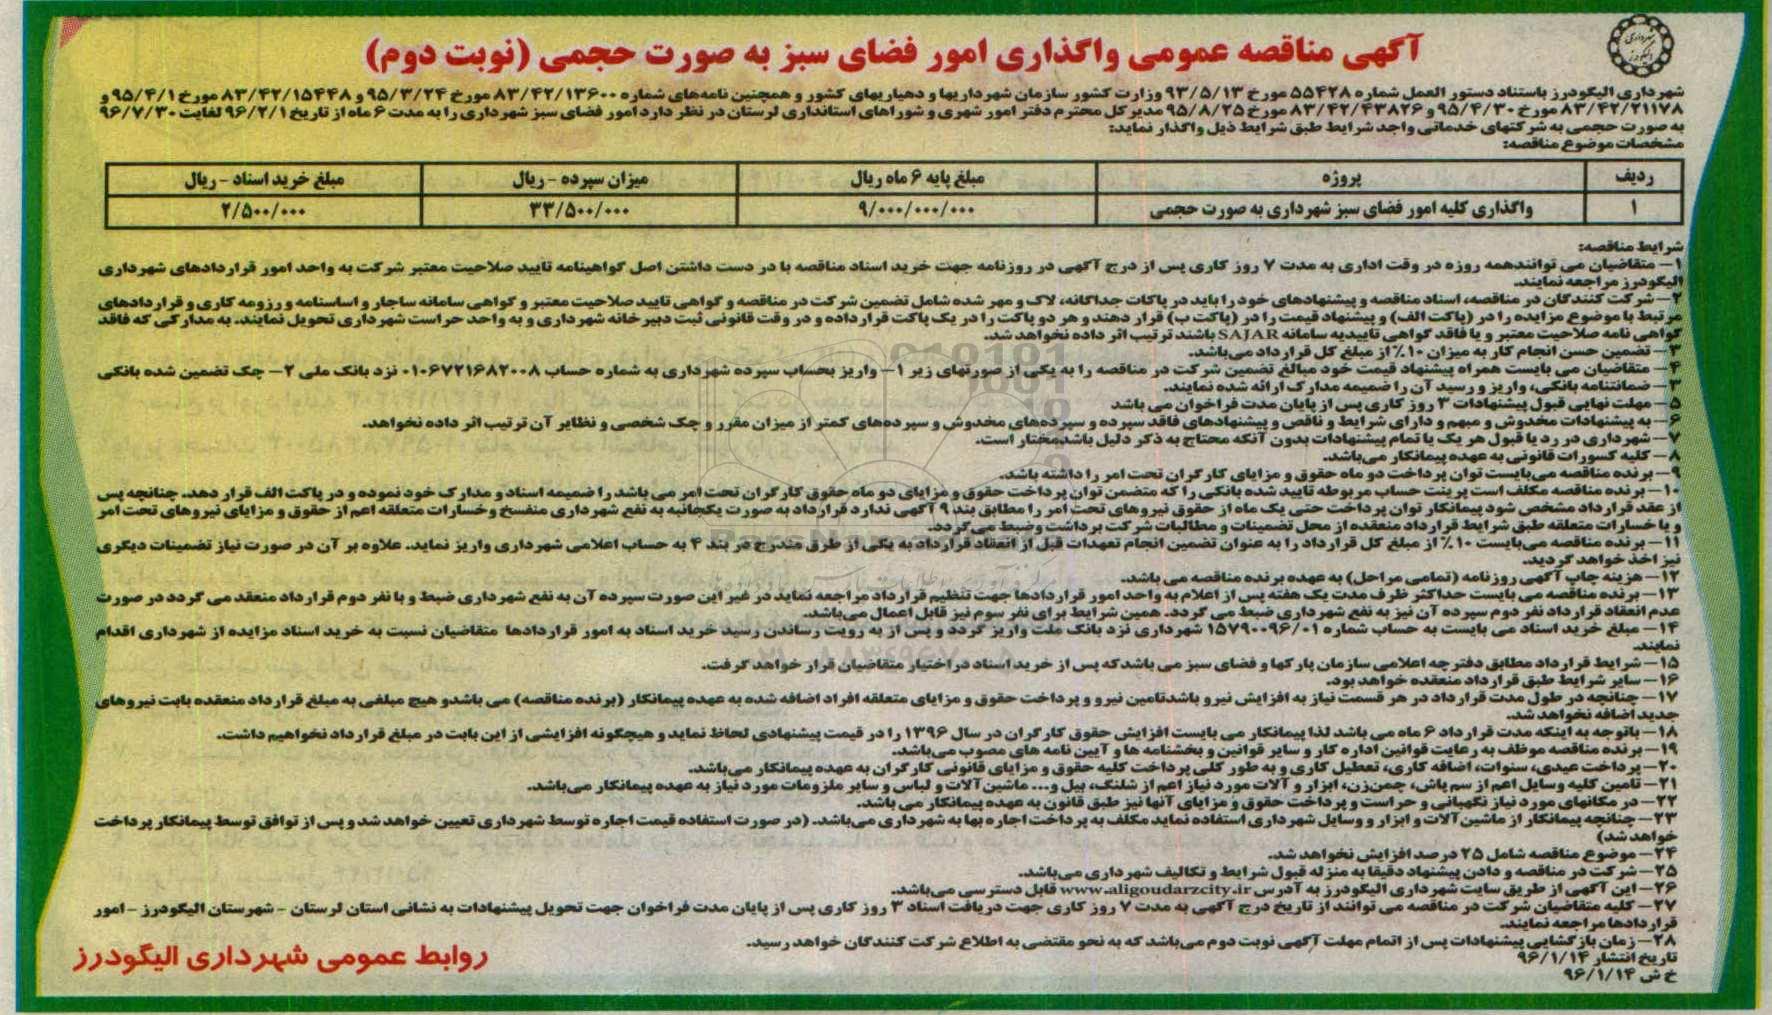 آگهی مناقصه عمومی واگذاری امور فضای سبز به صورت حجمی (نوبت دوم)
شهرداری الیگودرز باستناد دستور العمل شماره ۵۵۴۲۸ مورخ ۹۳/۵/۱۳ وزارت کشور سازمان شهرداریها و دهیاریهای کشور و همچنین نامه‌های شماره ۸۳/۴۲/۱۳۶۰۰ مورخ ۹۵/۳/۲۴ و ۸۳/۴۲/۱۵۴۴۸ مورخ ۹۵/۴/۱ و
۸۳/۴۲/۲۱۱۷۸ مورخ ۹۵/۴/۳۰ و ۸۳/۴۲/۴۳۸۲۶ مورخ ۹۵/۸/۲۵ مدیر کل محترم دفتر امور شهری و شوراهای استانداری لرستان در نظر دارد امور فضای سبز شهرداری را به مدت ۶ ماه از تاریخ ۹۶/۲/۱ لغایت ۹۶/۷/۳۰
به صورت حجمی به شرکتهای خدماتی واجد شرایط طبق شرایط ذیل واگذار نماید:
مشخصات موضوع مناقصه:
ردیف پروژه مبلغ پایه ۶ ماه ریال میزان سپرده - ریال مبلغ خرید اسناد - ریال
۱ واگذاری کلیه امور فضای سبز شهرداری به صورت حجمی ۹/۰۰۰/۰۰۰/۰۰۰ ۳۳/۵۰۰/۰۰۰ ۲/۵۰۰/۰۰۰
شرایط مناقصه:
۱- متقاضیان می توانندهمه روزه در وقت اداری به مدت ۷ روز کاری پس از درج آگهی در روزنامه جهت خرید اسناد مناقصه با در دست داشتن اصل گواهینامه تایید صلاحیت معتبر شرکت به واحد امور قراردادهای شهرداری
الیگودرز مراجعه نمایند.
۲- شرکت کنندگان در مناقصه، اسناد مناقصه و پیشنهادهای خود را باید در پاکات جداگانه، لاک و مهر شده شامل تضمین شرکت در مناقصه و گواهی تایید صلاحیت معتبر و گواهی سامانه ساجار و اساسنامه و رزومه کاری و قراردادهای
مرتبط با موضوع مزایده را در (پاکت الف) و پیشنهاد قیمت را در (پاکت ب) قرار دهند و هر دو پاکت را در یک پاکت قرار داده و در وقت قانونی ثبت دبیرخانه شهرداری و به واحد حراست شهرداری تحویل نمایند. به مدارکی که فاقد
گواهی نامه صلاحیت معتبر و یا فاقد گواهی تاییدیه سامانه SAJAR باشند ترتیب اثر داده نخواهد شد.
۳- تضمین حسن انجام کار به میزان ۱۰٪ از مبلغ کل قرارداد می‌باشد.
۴- متقاضیان می بایست همراه پیشنهاد قیمت خود مبالغ تضمین شرکت در مناقصه را به یکی از صورتهای زیر ۱- واریز بحساب سپرده شهرداری به شماره حساب ۰۱۰۶۷۲۱۶۸۲۰۰۸ نزد بانک ملی ۲- چک تضمین شده بانکی
۳- ضمانتنامه بانکی، واریز و رسید آن را ضمیمه مدارک ارائه شده نمایند.
۵- مهلت نهایی قبول پیشنهادات ۳ روز کاری پس از پایان مدت فراخوان می باشد
۶- به پیشنهادات مخدوش و مبهم و دارای شرایط و ناقص و پیشنهادهای فاقد سپرده و سپرده‌های مخدوش و سپرده‌های کمتر از میزان مقرر و چک شخصی و نظایر آن ترتیب اثر داده نخواهد.
۷- شهرداری در رد یا قبول هر یک یا تمام پیشنهادات بدون آنکه محتاج به ذکر دلیل باشدمختار است.
۸- کلیه کسورات قانونی به عهده پیمانکار می‌باشد.
۹- برنده مناقصه می‌بایست توان پرداخت دو ماه حقوق و مزایای کارگران تحت امر را داشته باشد.
۱۰- برنده مناقصه مکلف است پرینت حساب مربوطه تایید شده بانکی را که متضمن توان پرداخت حقوق و مزایای دو ماه حقوق کارگران تحت امر می باشد را ضمیمه اسناد و مدارک خود نموده و در پاکت الف قرار دهد. چنانچه پس
از عقد قرارداد مشخص شود پیمانکار توان پرداخت حتی یک ماه از حقوق نیروهای تحت امر را مطابق بند ۹ آگهی ندارد قرارداد به صورت یکجانبه به نفع شهرداری منفسخ وخسارات متعلقه اعم از حقوق و مزایای نیروهای تحت امر
و یا خسارات متعلقه طبق شرایط قرارداد منعقده از محل تضمینات و مطالبات شرکت برداشت وضبط می‌گردد.
۱۱- برنده مناقصه می‌بایست ۱۰٪ از مبلغ کل قرارداد را به عنوان تضمین انجام تعهدات قبل از انعقاد قرارداد به یکی از طرق مندرج در بند ۴ به حساب اعلامی شهرداری واریز نماید. علاوه بر آن در صورت نیاز تضمینات دیگری
نیز اخذ خواهد گردید.
۱۲- هزینه چاپ آگهی روزنامه (تمامی مراحل) به عهده برنده مناقصه می باشد.
۱۳- برنده مناقصه می بایست حداکثر ظرف مدت یک هفته پس از اعلام به واحد امور قراردادها جهت تنظیم قرارداد مراجعه نماید در غیر این صورت سپرده آن به نفع شهرداری ضبط و با نفر دوم قرارداد منعقد می گردد در صورت
عدم انعقاد قرارداد نفر دوم سپرده آن نیز به نفع شهرداری ضبط می گردد. همین شرایط برای نفر سوم نیز قابل اعمال می‌باشد.
۱۴- مبلغ خرید اسناد می بایست به حساب شماره ۱۵۷۹۰۰۹۶/۰۱ شهرداری نزد بانک ملت واریز گردد و پس از به رویت رساندن رسید خرید اسناد به امور قراردادها متقاضیان نسبت به خرید اسناد مزایده از شهرداری اقدام
نمایند.
۱۵- شرایط قرارداد مطابق دفترچه اعلامی سازمان پارکها و فضای سبز می باشدکه پس از خرید اسناد دراختیار متقاضیان قرار خواهد گرفت.
۱۶- سایر شرایط طبق قرارداد منعقده خواهد بود.
۱۷- چنانچه در طول مدت قرارداد در هر قسمت نیاز به افزایش نیرو باشدتامین نیرو و پرداخت حقوق و مزایای متعلقه افراد اضافه شده به عهده پیمانکار (برنده مناقصه) می باشدو هیچ مبلغی به مبلغ قرارداد منعقده بابت نیروهای
جدید اضافه نخواهد شد.
۱۸- باتوجه به اینکه مدت قرارداد ۶ ماه می باشد لذا پیمانکار می بایست افزایش حقوق کارگران در سال ۱۳۹۶ را در قیمت پیشنهادی لحاظ نماید و هیچگونه افزایشی از این بابت در مبلغ قرارداد نخواهیم داشت.
۱۹- برنده مناقصه موظف به رعایت قوانین اداره کار و سایر قوانین و بخشنامه ها و آیین نامه های مصوب می‌باشد.
۲۰- پرداخت عیدی، سنوات، اضافه کاری، تعطیل کاری و به طور کلی پرداخت کلیه حقوق و مزایای قانونی کارگران به عهده پیمانکار می‌باشد.
۲۱- تامین کلیه وسایل اعم از سم پاش، چمن‌زن، ابزار و آلات مورد نیاز اعم از شلنگ، بیل و... ماشین‌آلات و لباس و سایر ملزومات مورد نیاز به عهده پیمانکار می‌باشد.
۲۲- در مکانهای مورد نیاز نگهبانی و حراست و پرداخت حقوق و مزایای آنها نیز طبق قانون به عهده پیمانکار می باشد.
۲۳- چنانچه پیمانکار از ماشین‌آلات و ابزار و وسایل شهرداری استفاده نماید مکلف به پرداخت اجاره بها به شهرداری می‌باشد. (در صورت استفاده قیمت اجاره توسط شهرداری تعیین خواهد شد و پس از توافق توسط پیمانکار پرداخت
خواهد شد)
۲۴- موضوع مناقصه شامل ۲۵ درصد افزایش نخواهد شد.
۲۵- شرکت در مناقصه و دادن پیشنهاد دقیقا به منزله قبول شرایط و تکالیف شهرداری می‌باشد.
۲۶- این آگهی از طریق سایت شهرداری الیگودرز به آدرس www.aligoudarzcity.ir قابل دسترسی می‌باشد.
۲۷- کلیه متقاضیان شرکت در مناقصه می توانند از تاریخ درج آگهی به مدت ۷ روز کاری جهت دریافت اسناد ۳ روز کاری پس از پایان مدت فراخوان جهت تحویل پیشنهادات به نشانی استان لرستان - شهرستان الیگودرز - امور
قراردادها مراجعه نمایند.
۲۸- زمان بازگشایی پیشنهادات پس از اتمام مهلت آگهی نوبت دوم می‌باشد که به نحو مقتضی به اطلاع شرکت کنندگان خواهد رسید.
تاریخ انتشار ۹۶/۱/۱۴
خ ش ۹۶/۱/۱۴
روابط عمومی شهرداری الیگودرز